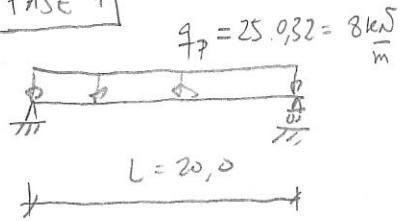 FASE 1
q_p = 25.0,32 = 8 kN/m
L = 20,0